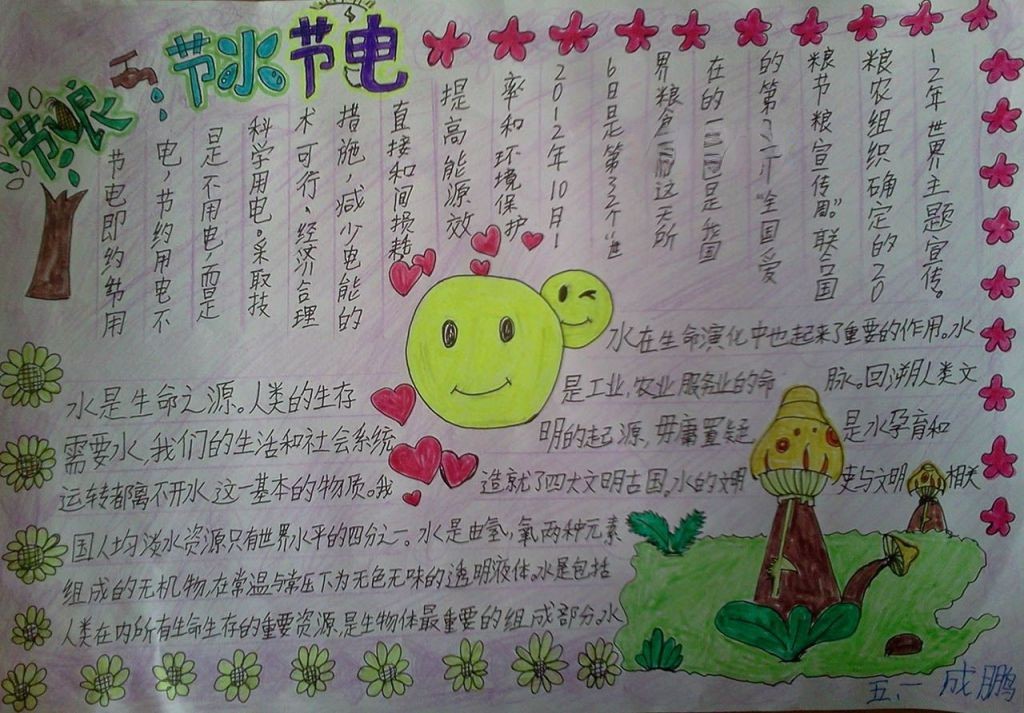 节粮
节水节电
节电即约节用
电，节约用电不
是不用电，而是
科学用电。采取技
术可行、经济合理
措施，减少电能的
直接和间损耗
提高能源效
率和环境保护
2012年10月1
6日是第33个“世
界粮食 这天所
在的一 是我国
的第 个“全国爱
粮节粮宣传周。”联合国
粮农组织确定的20
12年世界主题宣传。
水是生命之源。人类的生存
需要水，我们的生活和社会系统
运转都离不开水这一基本的物质。我
国人均淡水资源只有世界水平的四分之一。水是由氢、氧两种元素
组成的无机物，在常温与常压下为无色无味的透明液体。水是包括
人类在内所有生命生存的重要资源，是生物体最重要的组成部分。水
水在生命演化中也起来了重要的作用。水
是工业，农业服务业的命 脉。回溯人类文
明的起源，毋庸置疑 是水孕育和
造就了四大文明古国。水的文明 史与文明 相关
五、一 成鹏